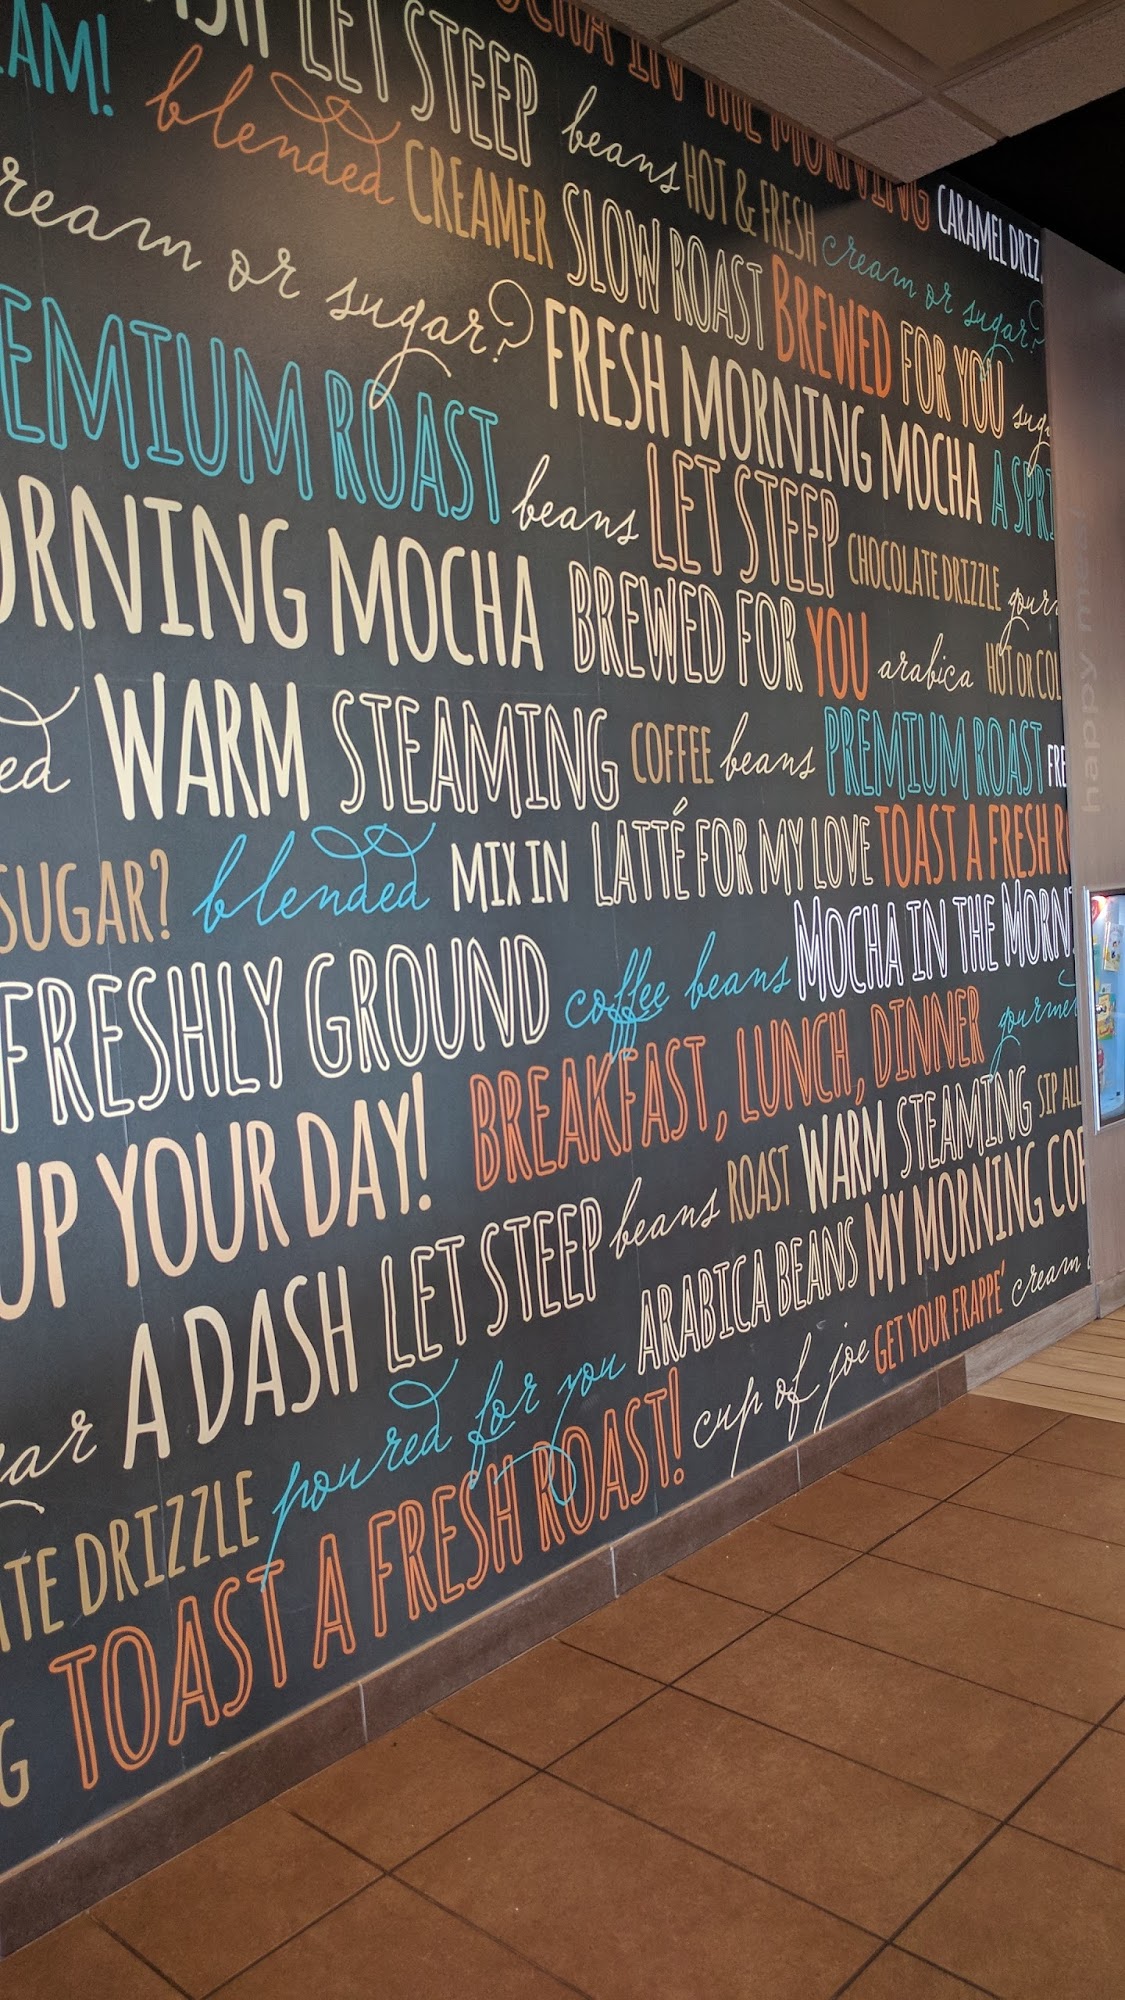 ASH LET STEEP MOCHA IN THE MORNING
AM! blended CREAMER beans HOT & FRESH CARAMEL DRIZ
ream or sugar? SLOW ROAST BREWED FOR YOU cream or sugar?
EMIUM ROAST FRESH MORNING MOCHA A SPRI sug
beans LET STEEP CHOCOLATE DRIZZLE gour
ORNING MOCHA BREWED FOR YOU arabica HOT OR COL
ed WARM STEAMING COFFEE beans PREMIUM ROAST FRE
SUGAR? blended MIX IN LATTÉ FOR MY LOVE TOAST A FRESH R
FRESHLY GROUND coffee beans MOCHA IN THE MORN
UP YOUR DAY! BREAKFAST, LUNCH, DINNER gourmet
A DASH LET STEEP beans ROAST WARM STEAMING SIP ALL
ar poured for you ARABICA BEANS MY MORNING COF
TE DRIZZLE TOAST A FRESH ROAST! cup of joe GET YOUR FRAPPÉ cream
G
happy meal